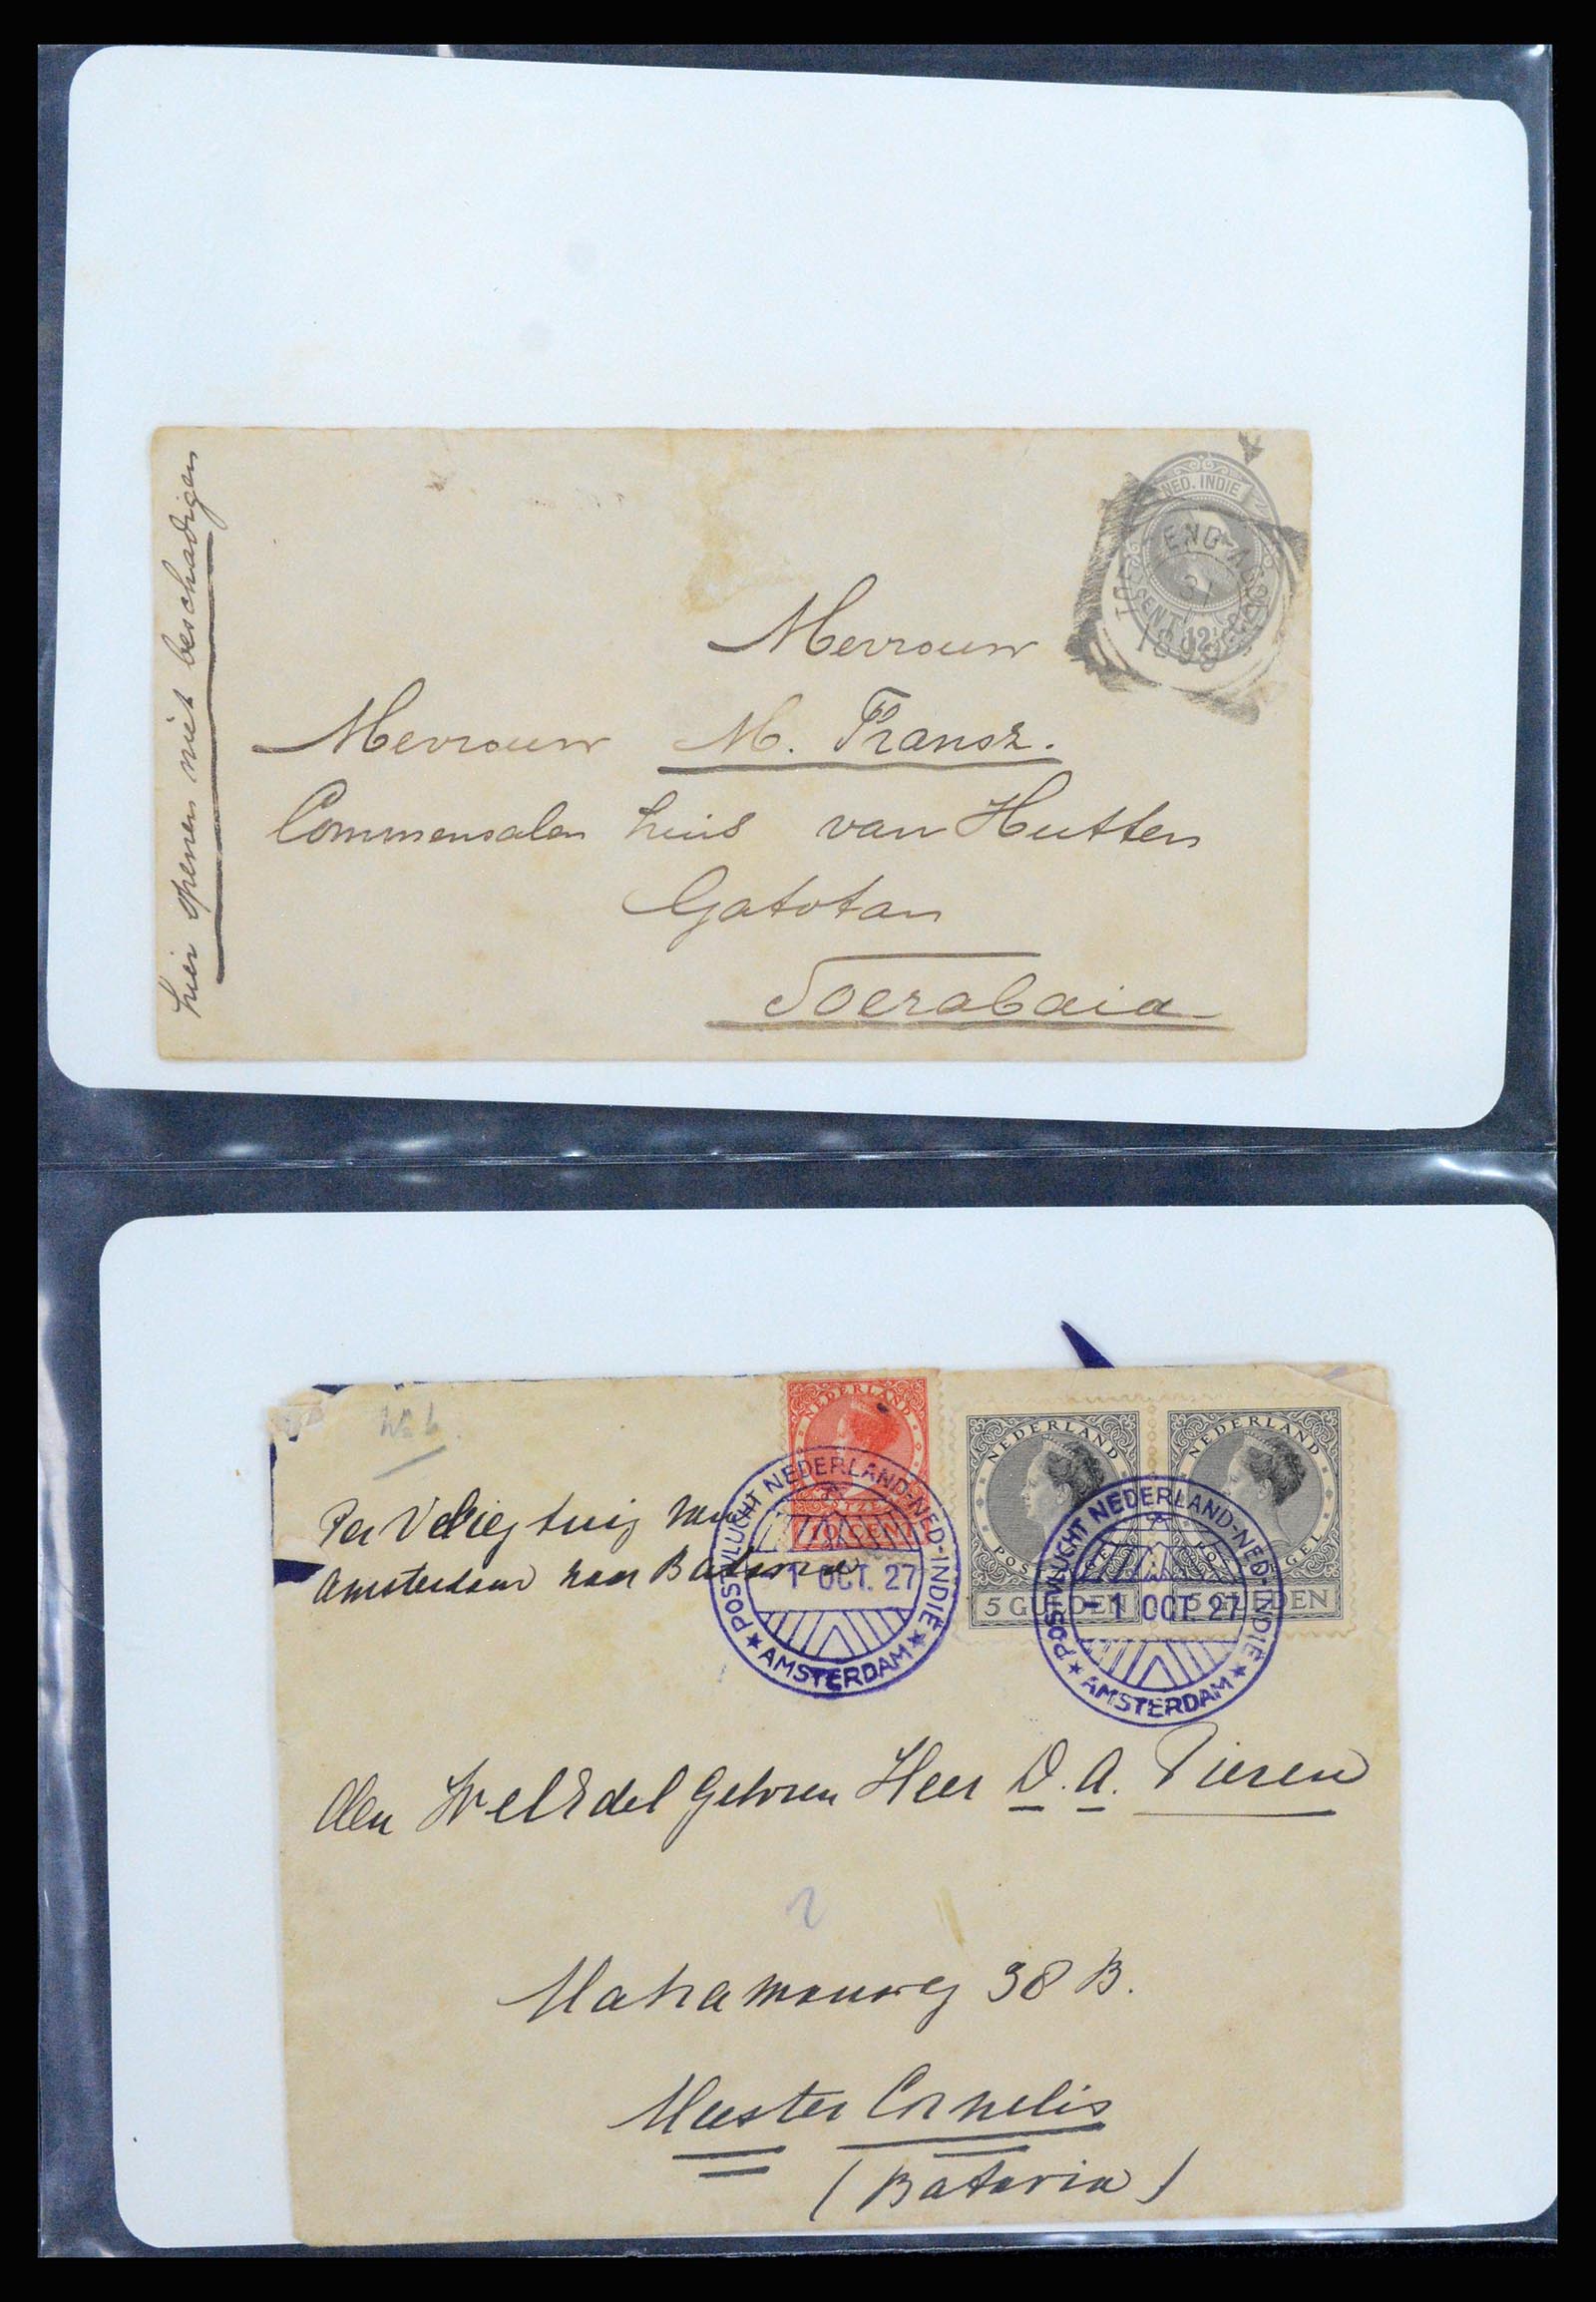 hier openen niet beschadigen
NED. INDIE
CENT
31
Mevrouw
Mevrouw M. Fransz.
Commensalen huis van Hutten
Gatotan
Soerabaia
No 6
NEDERLAND
10 CENT
NEDERLAND
5 GULDEN
NEDERLAND
5 GULDEN
POSTVLUCHT NEDERLAND-NED-INDIË
1 OCT. 27
★ AMSTERDAM ★
POSTVLUCHT NEDERLAND-NED-INDIË
-1 OCT. 27
★ AMSTERDAM ★
Per Vliegtuig van
Amsterdam naar Batavia
den WelEdel Geboren Heer D. A. Pieren
2
Matramanweg 38 B.
Meester Cornelis
(Batavia)